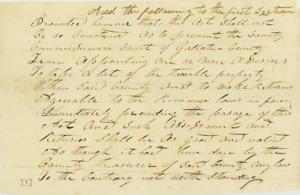 Add the following to the first Section
Provided however that this Act shall not
be so construed as to prevent the County
Commissioners Court of Gallatin County
from appointing one or more Assessors
to take a list of the taxable property
within said County and to make Returns
Agreeable to the Revenue laws in force
Immediately preceding the passage of this
Act And Such Assessment and
Returns shall be as good and valid
as though it had been done by the
County Treasurer of Said County any law
to the Contrary notwithstanding